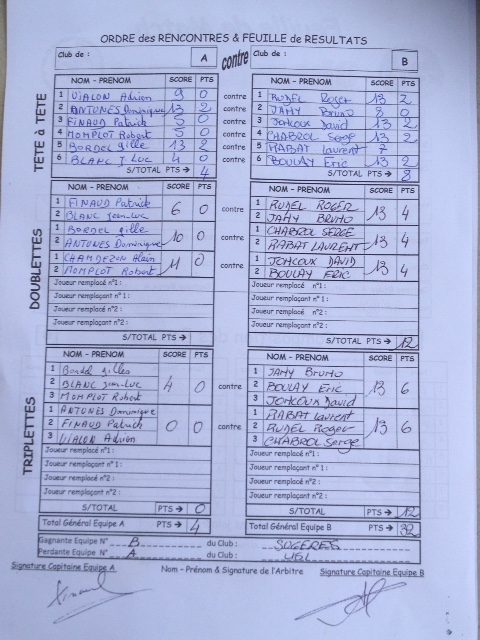 ORDRE des RENCONTRES & FEUILLE de RESULTATS
Club de : A contre Club de : B
TETE à TETE
NOM - PRENOM SCORE PTS NOM - PRENOM SCORE PTS
1 VIALON Adrien 9 0 contre RUDEL Roger 13 2
2 ANTUNÉS Dominique 13 2 contre 2 JAMY Bruno 8 0
3 FINAUD Patrick 5 0 contre 3 JONCOUX David 13 2
4 MOMPLOT Robert 5 0 contre 4 CHABROL SERGE 13 2
5 BORDEL gille 13 2 contre 5 RABAT Laurent 7
6 BLANC J Luc 4 0 contre 6 BOULAY Eric 13 2
S/TOTAL PTS → 4 S/TOTAL PTS → 8
DOUBLETTES
NOM - PRENOM SCORE PTS NOM - PRENOM SCORE PTS
1 FINAUD Patrick 6 0 contre 1 RUDEL ROGER 13 4
2 BLANC Jean-Luc 2 JAMY BRUNO
1 BORDEL gille 10 0 contre 1 CHABROL SERGE 13 4
2 ANTUNES Dominique 2 RABAT LAURENT
1 CHAMDEZON Alain 11 0 contre 1 JONCOUX DAVID 13 4
2 MOMPLOT Robert 2 BOULAY ERIC
Joueur remplacé n°1: Joueur remplacé n°1:
Joueur remplaçant n°1 : Joueur remplaçant n°1 :
Joueur remplacé n°2: Joueur remplacé n°2:
Joueur remplaçant n°2: Joueur remplaçant n°2:
S/TOTAL PTS → S/TOTAL PTS → 12
TRIPLETTES
NOM - PRENOM SCORE PTS NOM - PRENOM SCORE PTS
1 Bordel gilles 1 JAMY BRUNO
2 BLANC Jean-Luc 4 0 contre 2 BOULAY Eric 13 6
3 MOMPLOT Robert 3 JONCOUX David
1 ANTUNÉS Dominique 1 RABAT Laurent
2 FINAUD Patrick 0 0 contre 2 RUDEL Roger 13 6
3 VIALON Adrien 3 CHABROL Serge
Joueur remplacé n°1: Joueur remplacé n°1:
Joueur remplaçant n°1 : Joueur remplaçant n°1 :
Joueur remplacé n°2: Joueur remplacé n°2:
Joueur remplaçant n°2 : Joueur remplaçant n°2 :
S/TOTAL PTS → 0 S/TOTAL PTS → 12
Total Général Equipe A PTS → 4 Total Général Equipe B PTS → 32
Gagnante Equipe N° B du Club : SUGERES
Perdante Equipe N° A du Club :
Signature Capitaine Equipe A Nom - Prénom & Signature de l'Arbitre Signature Capitaine Equipe B